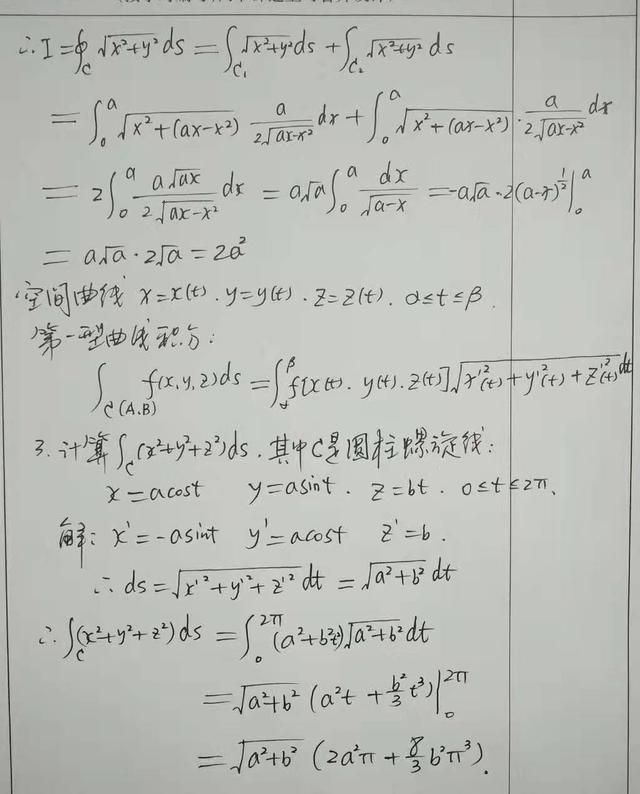 ∴ I = ∮_C √(x²+y²) ds = ∫_{C₁} √(x²+y²) ds + ∫_{C₂} √(x²+y²) ds
= ∫₀^a √(x²+(ax-x²)) a/(2√(ax-x²)) dx + ∫₀^a √(x²+(ax-x²)) · a/(2√(ax-x²)) dx
= 2∫₀^a a√(ax)/(2√(ax-x²)) dx = a√a ∫₀^a dx/√(a-x) = -a√a · 2(a-x)^{1/2} |₀^a
= a√a · 2√a = 2a²
空间曲线 x=x(t). y=y(t). z=z(t). α≤t≤β.
第一型曲线积分:
∫_{C(A.B)} f(x,y,z)ds = ∫_α^β f[x(t). y(t). z(t)] √(x'²(t)+y'²(t)+z'²(t)) dt
3. 计算 ∫_C (x²+y²+z²)ds. 其中C是圆柱螺旋线:
x=acost y=asint. z=bt. 0≤t≤2π.
解: x'=-asint y'=acost z'=b.
∴ ds=√(x'²+y'²+z'²) dt = √(a²+b²) dt
∴ ∫_C (x²+y²+z²)ds = ∫₀^{2π} (a²+b²t²)√(a²+b²) dt
= √(a²+b²) (a²t + b²/3 t³) |₀^{2π}
= √(a²+b²) (2a²π + 8/3 b²π³).